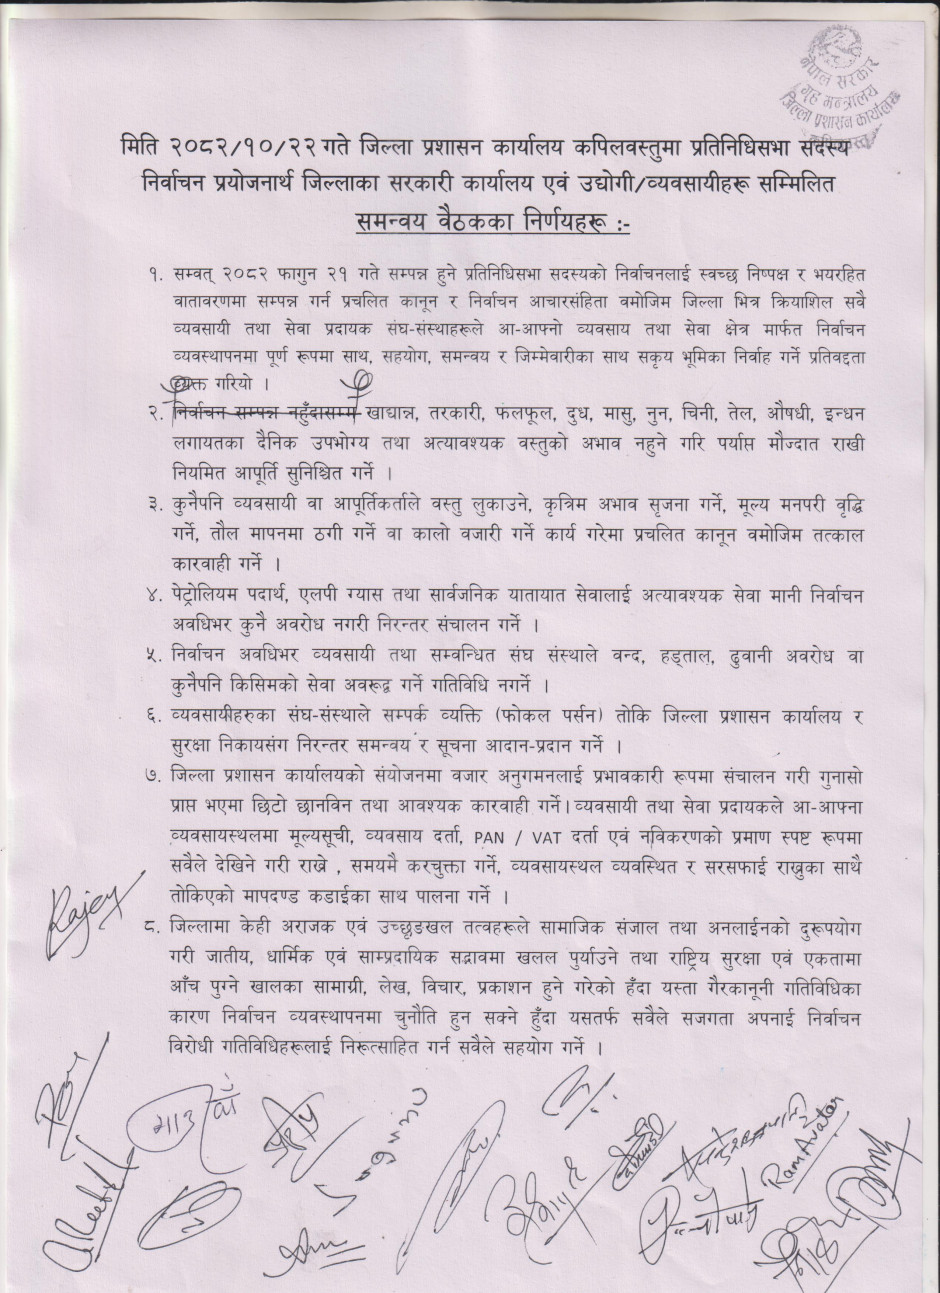 नेपाल सरकार
गृह मन्त्रालय
जिल्ला प्रशासन कार्यालय
कपिलवस्तु
मिति २०८२/१०/२२ गते जिल्ला प्रशासन कार्यालय कपिलवस्तुमा प्रतिनिधिसभा सदस्य
निर्वाचन प्रयोजनार्थ जिल्लाका सरकारी कार्यालय एवं उद्योगी/व्यवसायीहरू सम्मिलित
समन्वय वैठकका निर्णयहरू :-
१. सम्वत् २०८२ फागुन २१ गते सम्पन्न हुने प्रतिनिधिसभा सदस्यको निर्वाचनलाई स्वच्छ निष्पक्ष र भयरहित
वातावरणमा सम्पन्न गर्न प्रचलित कानून र निर्वाचन आचारसंहिता वमोजिम जिल्ला भित्र क्रियाशिल सवै
व्यवसायी तथा सेवा प्रदायक संघ-संस्थाहरूले आ-आफ्नो व्यवसाय तथा सेवा क्षेत्र मार्फत निर्वाचन
व्यवस्थापनमा पूर्ण रूपमा साथ, सहयोग, समन्वय र जिम्मेवारीका साथ सकृय भूमिका निर्वाह गर्ने प्रतिवद्दता
व्यक्त गरियो ।
२. निर्वाचन सम्पन्न नहुँदासम्म खाद्यान्न, तरकारी, फलफूल, दुध, मासु, नुन, चिनी, तेल, औषधी, इन्धन
लगायतका दैनिक उपभोग्य तथा अत्यावश्यक वस्तुको अभाव नहुने गरि पर्याप्त मौज्दात राखी
नियमित आपूर्ति सुनिश्चित गर्ने ।
३. कुनैपनि व्यवसायी वा आपूर्तिकर्ताले वस्तु लुकाउने, कृत्रिम अभाव सृजना गर्ने, मूल्य मनपरी वृद्धि
गर्ने, तौल मापनमा ठगी गर्ने वा कालो वजारी गर्ने कार्य गरेमा प्रचलित कानून वमोजिम तत्काल
कारवाही गर्ने ।
४. पेट्रोलियम पदार्थ, एलपी ग्यास तथा सार्वजनिक यातायात सेवालाई अत्यावश्यक सेवा मानी निर्वाचन
अवधिभर कुनै अवरोध नगरी निरन्तर संचालन गर्ने ।
५. निर्वाचन अवधिभर व्यवसायी तथा सम्वन्धित संघ संस्थाले वन्द, हड्ताल, ढुवानी अवरोध वा
कुनैपनि किसिमको सेवा अवरूद्ध गर्ने गतिविधि नगर्ने ।
६. व्यवसायीहरुका संघ-संस्थाले सम्पर्क व्यक्ति (फोकल पर्सन) तोकि जिल्ला प्रशासन कार्यालय र
सुरक्षा निकायसंग निरन्तर समन्वय र सूचना आदान-प्रदान गर्ने ।
७. जिल्ला प्रशासन कार्यालयको संयोजनमा वजार अनुगमनलाई प्रभावकारी रूपमा संचालन गरी गुनासो
प्राप्त भएमा छिटो छानविन तथा आवश्यक कारवाही गर्ने। व्यवसायी तथा सेवा प्रदायकले आ-आफ्ना
व्यवसायस्थलमा मूल्यसूची, व्यवसाय दर्ता, PAN / VAT दर्ता एवं नविकरणको प्रमाण स्पष्ट रूपमा
सवैले देखिने गरी राख्ने , समयमै करचुक्ता गर्ने, व्यवसायस्थल व्यवस्थित र सरसफाई राख्नुका साथै
तोकिएको मापदण्ड कडाईका साथ पालना गर्ने ।
८. जिल्लामा केही अराजक एवं उच्छृङखल तत्वहरूले सामाजिक संजाल तथा अनलाईनको दुरूपयोग
गरी जातीय, धार्मिक एवं साम्प्रदायिक सद्भावमा खलल पुर्याउने तथा राष्ट्रिय सुरक्षा एवं एकतामा
आँच पुग्ने खालका सामाग्री, लेख, विचार, प्रकाशन हुने गरेको हुँदा यस्ता गैरकानूनी गतिविधिका
कारण निर्वाचन व्यवस्थापनमा चुनौति हुन सक्ने हुँदा यसतर्फ सवैले सजगता अपनाई निर्वाचन
विरोधी गतिविधिहरूलाई निरूत्साहित गर्न सवैले सहयोग गर्ने ।
Rajey
RamAvatar